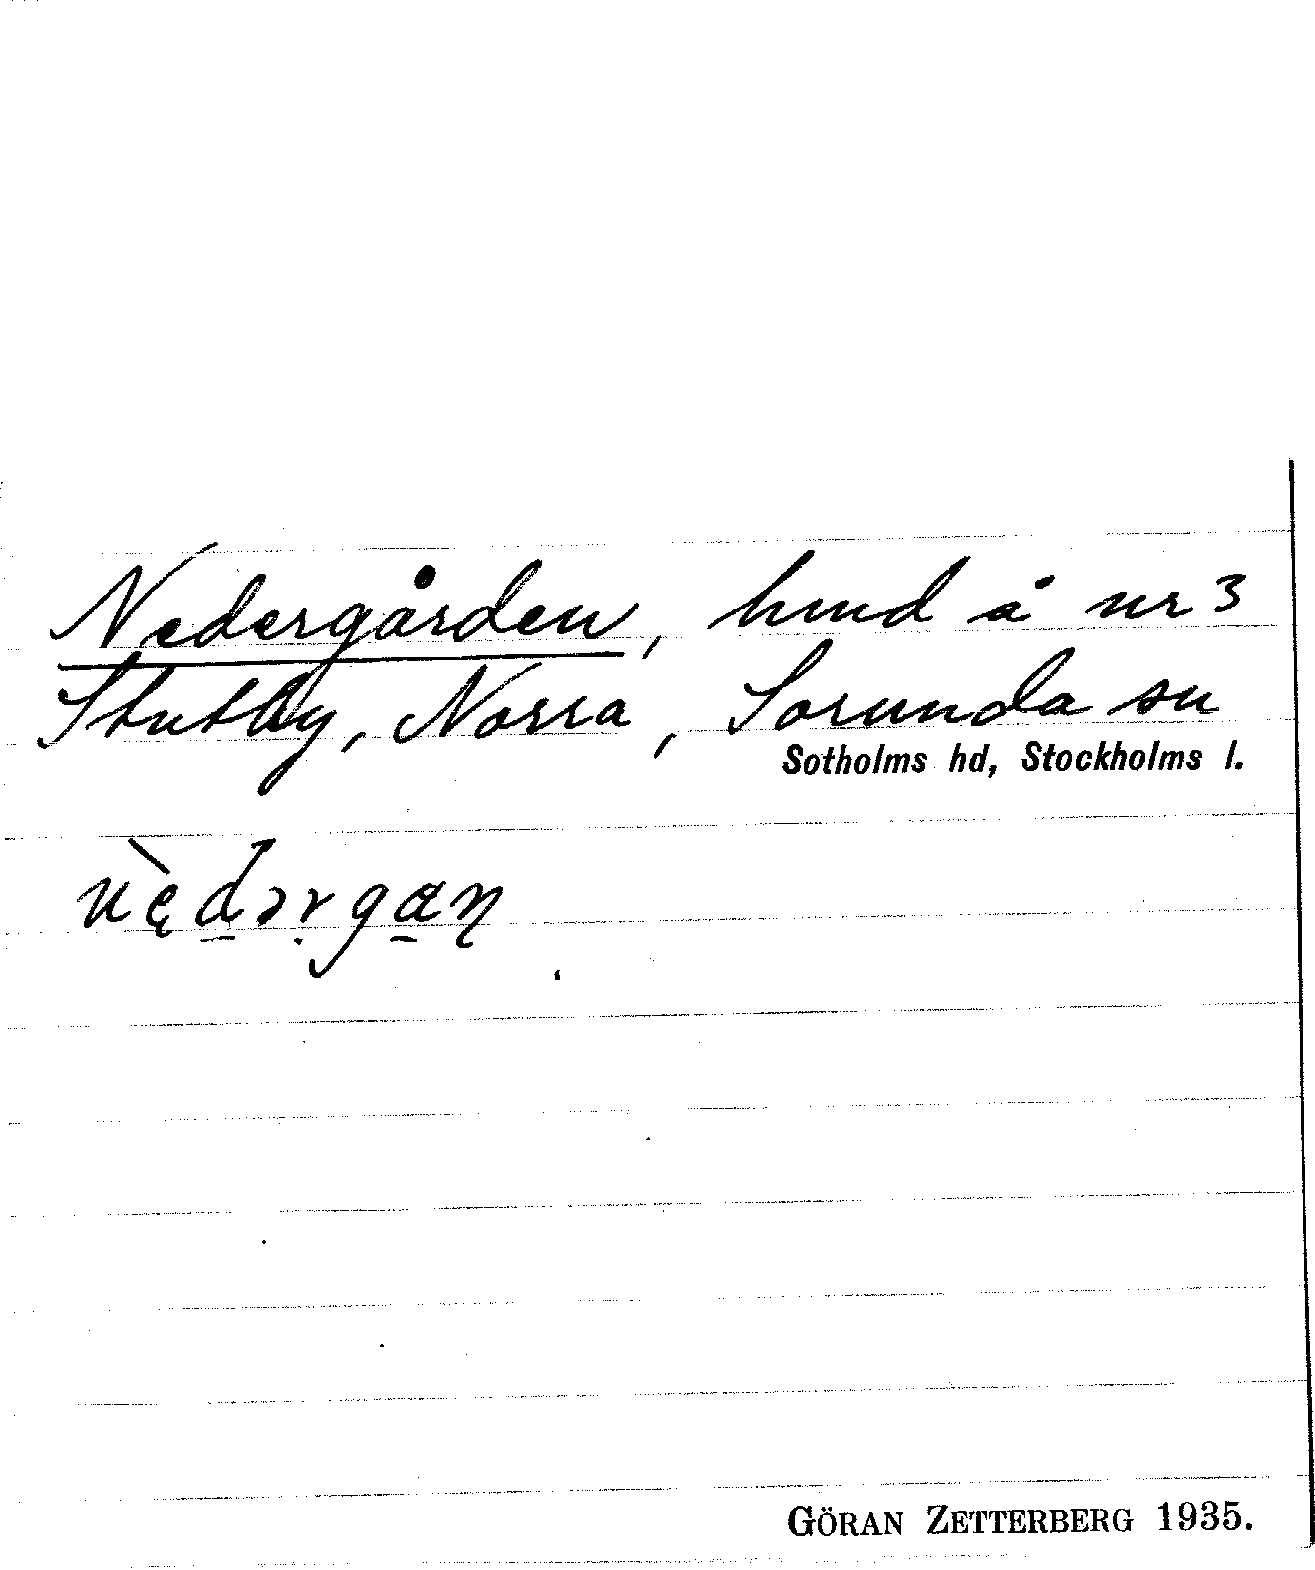 Nedergården, hmd å nr 3
Stutby, Norra, Sorunda sn
Sotholms hd, Stockholms l.
nę̀d̠ərg̣a̠ṇ
GÖRAN ZETTERBERG 1935.